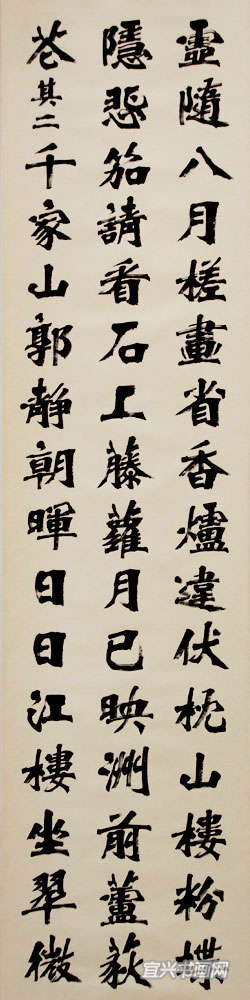 虛隨八月槎畫省香爐違伏枕山樓粉堞
隱悲笳請看石上藤蘿月已映洲前蘆荻
花其二千家山郭靜朝暉日日江樓坐翠微
宜兴书画网